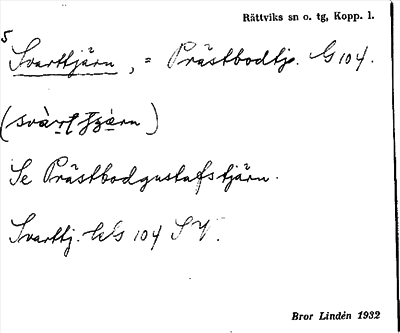 Rättviks sn o. tg, Kopp. l.
5
Svarttjärn, = Prästbodtj. G 104.
Se Prästbodgustafstjärn.
Svarttj. 104 SV.
Bror Lindén 1932